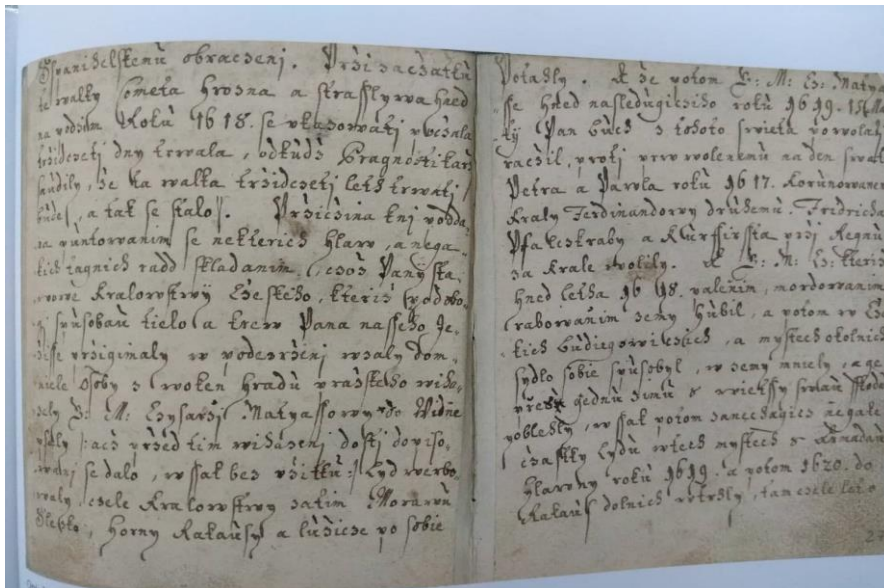 Spanihelskemu obraczenj. Przi zaczatku
te walky Cometa hrozna a strasslywa hned
na podzim Rokù 1618. se vkazowati poczala
trzidczeti dny trwala, odkùdz Pragnostikarzi
saudily, że ta walka trzidczeti leth trwati
bùde, a tak se stalo. Prziczina tej
pùntowanim se nekterich hlaw, a nega-
kich tagnich radd skladanim, czoz Panÿ sta
wowe Kralowstwÿ Czeskeho, kterÿ pod obo-
gj spùsobaù tielo a krew Pana nasseho Je-
zisse przigimaly w podezrzenj wzaly dom-
niele Osoby z woken hradù prazskeho wiho-
zely G: M: Czysarzi Matyassowy do Widne
psaly /: acz przed tim wihazeni dosti dopiso-
wani se dalo, wssak bez vzitkù :/ Lyd werbo-
waly, czele Kralowstwy zatim Morawù
Slezko, horny Rakaùsy a lùzicze po sobie
Potahly. A że potom G: M: Cz: Matya
sse hned nasledùgicziho rokù 1619.
tÿ Pan bùch z tohoto swieta powolati
raczil, protj prw wolenemù na den swate
Petra a Pawla rokù 1617. korùnowanem
Kraly Ferdinandowy drùhemù. Fridricha
Pfalczkraby a Kùrfirssta przj Regnù
za Krale wolily. A G: M: Cz: kteriz
hned letha 1618. palenim, mordowanim
rabowanim zemy hùbil, a potom w Cze
kich bùdiegowiczich, a mystech okolnich
sydlo sobie spùsobyl, w zemy mniely, a ge
przes gednù zimù s wietssy
oblehly, wssak potom zanechagicz negake
czastky Lydù wtech mystech s Armadaù
hlawny rokù 1619. a potom 1620. do
Rakaùs dolnich wtrhly, tam czele leto